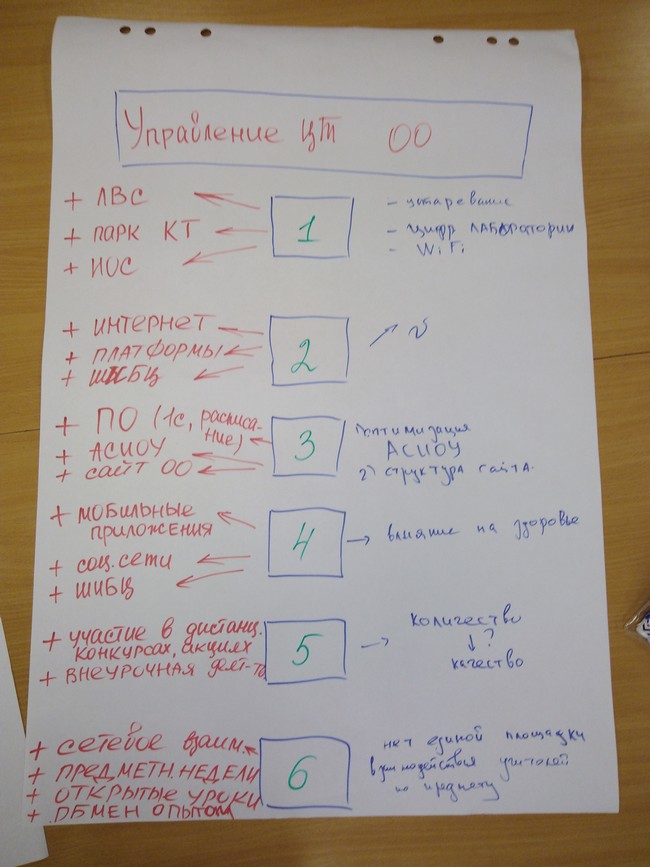 Управление ЦТ ОО
+ ЛВС
+ ПАРК КТ
+ ИОС
1
- устаревание
- цифр ЛАБОРАТОРИИ
- WiFi
+ ИНТЕРНЕТ
+ ПЛАТФОРМЫ
+ ШИБЦ
2
+ ПО (1с, расписа-
ние)
+ АСИОУ
+ сайт ОО
3
1) оптимизация
АСИОУ
2) структура сайта.
+ МОБИЛЬНЫЕ
приложения
+ соц. сети
+ ШИБЦ
4
влияние на здоровье
+ УЧАСТИЕ В дистанц.
конкурсах, акциях
+ ВНЕУРОЧНАЯ деят-ть
5
количество
?
качество
+ Сетевое взаим.
+ ПРЕДМЕТН. НЕДЕЛИ
+ ОТКРЫТЫЕ УРОКИ
+ ОБМЕН ОПЫТОМ
6
нет единой площадки
взаимодействия учителей
по предмету